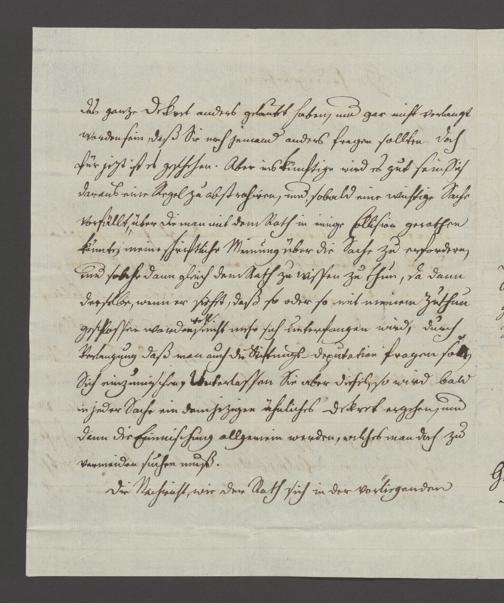 das ganze Dekret anders gelautet haben, und gar nicht verlangt
worden sein, daß Sie noch jemand anders fragen sollten. Doch
für jezt ist es geschehen. Aber ins künftige wird es gut sein, Sich
daraus eine Regel zu abstrahiren, und sobald eine wichtige Sache
vorfällt, über die man mit dem Rath in einige Collision gerathen
könnte, meine schriftliche Meinung über die Sache zu erfordern,
und solche dann gleich dem Rath zu wissen zu thun, da dann
derselbe, wenn er sieht, daß so oder so mit meinem Zuthun
geschlossen worden ist, nicht mehr sich unterfangen wird, durch
Verlangung daß man auch die Stiftungs deputation fragen solle,
Sich einzumischen. Unterlassen Sie aber dieses, so wird bald
in jeder Sache ein dem jezigen ähnliches Dekret ergehen, und
dann die Einmischung allgemein werden, welches man doch zu
vermeiden suchen muß.
Die Nachricht, wie der Rath sich in der vorliegenden